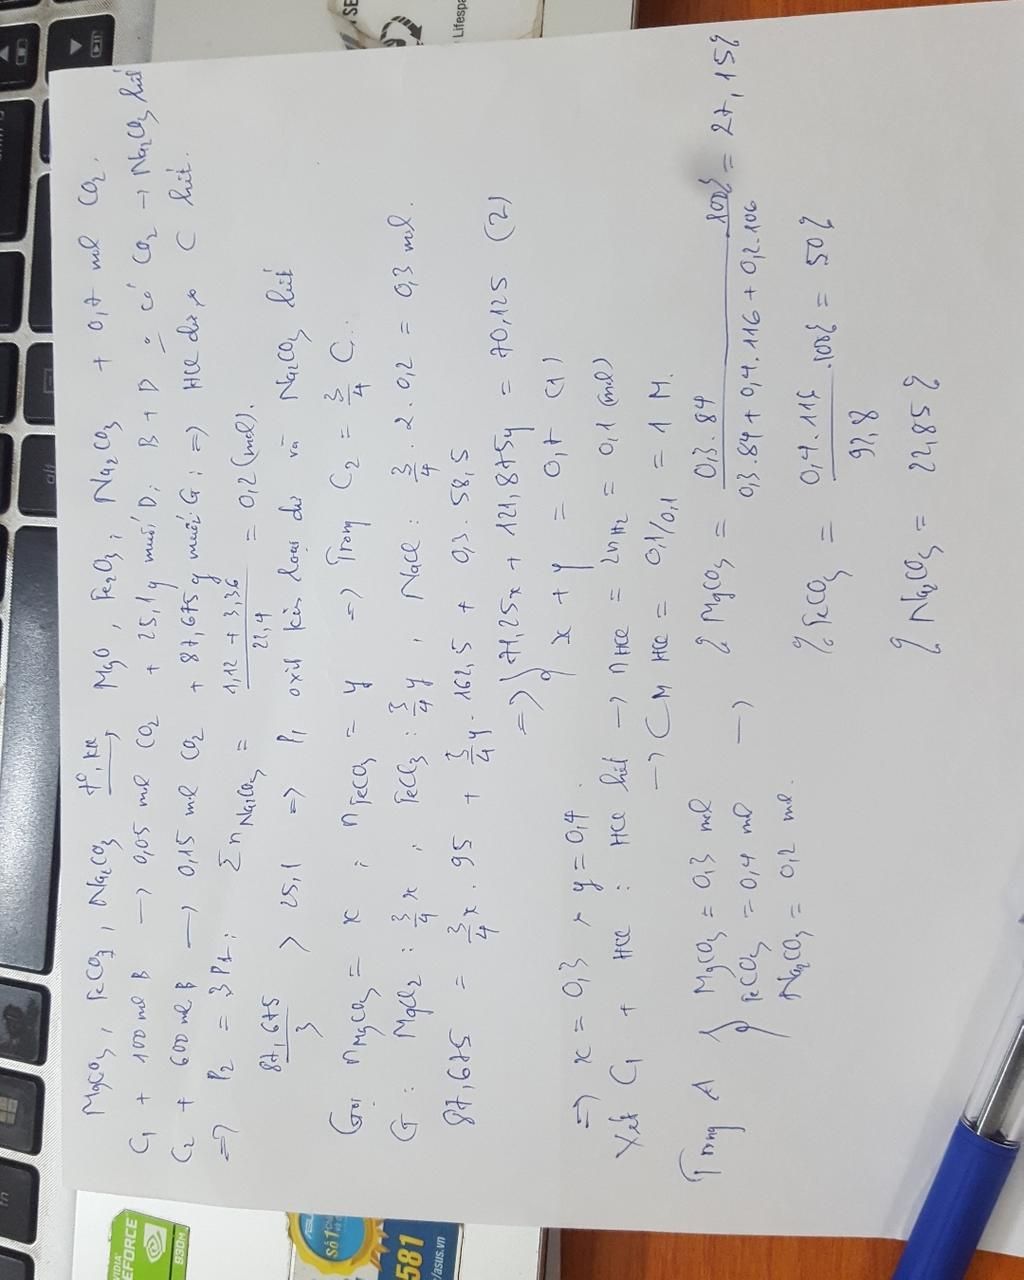 MgCO3, FeCO3, Na2CO3 t°, kk → MgO, Fe2O3, Na2CO3 + 0,7 mol CO2.
C1 + 100 ml B → 0,05 mol CO2 + 25,1 g muối D; B + D có CO2 → Na2CO3 hết
C2 + 600 ml B → 0,15 mol CO2 + 87,675 g muối G; => HCl dư, C hết.
=> P2 = 3P1. Σn Na2CO3 = (1,12 + 3,36)/22,4 = 0,2 (mol).
87,675/3 > 25,1 => P1 oxit kim loại dư và Na2CO3 hết
Gọi nMgCO3 = x ; nFeCO3 = y => Trong C2 = 3/4 C.
G: MgCl2: 3/4 x ; FeCl3: 3/4 y ; NaCl: 3/4 . 2 . 0,2 = 0,3 mol.
87,675 = 3/4 x . 95 + 3/4 y . 162,5 + 0,3 . 58,5
=> { 71,25x + 121,875y = 70,125 (2)
x + y = 0,7 (1)
=> x = 0,3 , y = 0,4.
Xét C1 + HCl : HCl hết → nHCl = 2nH2 = 0,1 (mol)
→ CM HCl = 0,1/0,1 = 1 M.
Trong A { MgCO3 = 0,3 mol
FeCO3 = 0,4 mol →
Na2CO3 = 0,2 mol.
% MgCO3 = 0,3.84/(0,3.84 + 0,4.116 + 0,2.106) .100% = 27,15%
% FeCO3 = 0,4.116/92,8 .100% = 50%
% Na2CO3 = 22,85%
Lifespa
NVIDIA
GEFORCE
930M
ASUS
Số 1
581
/asus.vn
alt
fn